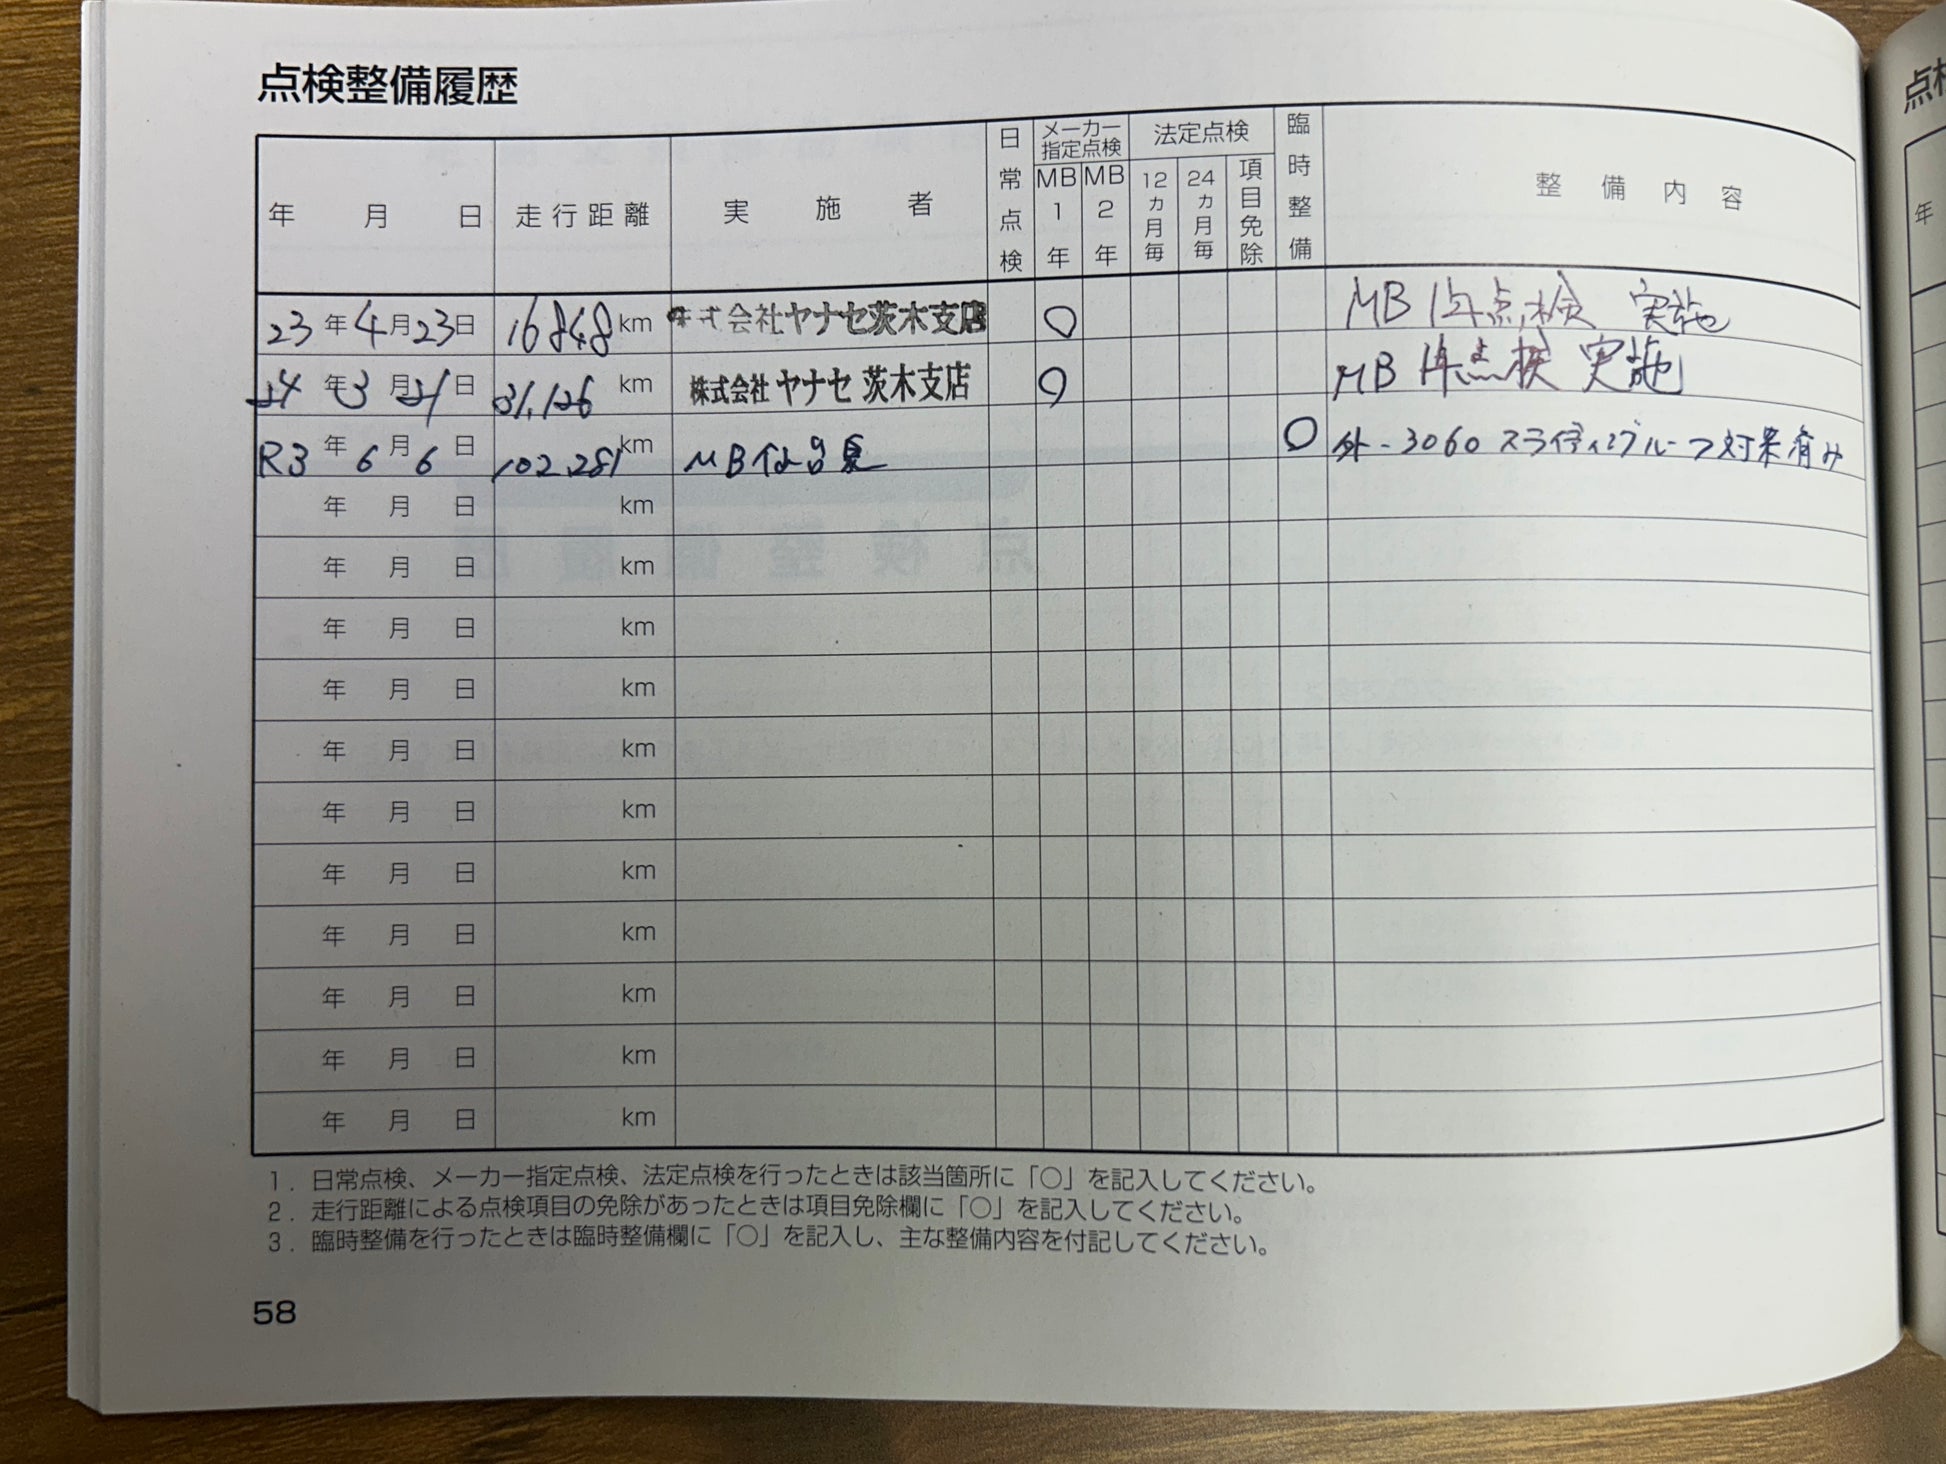 点検整備履歴
年 月 日 走行距離 実施者 日常点検 メーカー指定点検 MB1年 MB2年 法定点検 12ヵ月毎 24ヵ月毎 項目免除 臨時整備 整備内容
23年4月23日 16848km 株式会社ヤナセ茨木支店 ○ MB 1年点検 実施
24年3月21日 31,126km 株式会社ヤナセ 茨木支店 ○ MB 1年点検 実施
R3年6月6日 102,281km MB ○ 外-3060 スライディングルーフ対策済み
年 月 日 km
年 月 日 km
年 月 日 km
年 月 日 km
年 月 日 km
年 月 日 km
年 月 日 km
年 月 日 km
年 月 日 km
年 月 日 km
年 月 日 km
1. 日常点検、メーカー指定点検、法定点検を行ったときは該当箇所に「○」を記入してください。
2. 走行距離による点検項目の免除があったときは項目免除欄に「○」を記入してください。
3. 臨時整備を行ったときは臨時整備欄に「○」を記入し、主な整備内容を付記してください。
58
点検
年